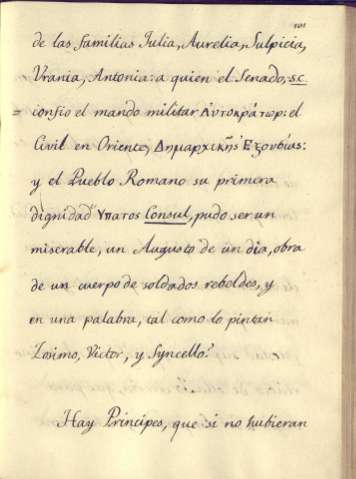 de las familias Julia, Aurelia, Sulpicia,
Vrania, Antonia: a quien el Senado, s.c.
confio el mando militar Αυτοκράτωρ: el
Civil en Oriente, Δημαρχικῆς Ἐξουσίας:
y el Pueblo Romano su primera
dignidad Υπατος Consul, pudo ser un
miserable, un Augusto de un dia, obra
de un cuerpo de soldados rebeldes, y
en una palabra, tal como lo pintan
Zosimo, Victor, y Syncello?
Hay Principes, que si no hubieran